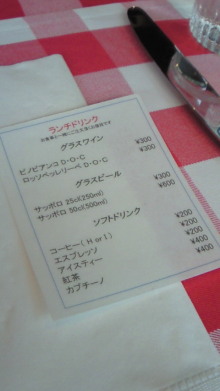 ランチドリンク
グラスワイン
ピノビアンコ D・O・C ¥300
ロッソペッレリーベ D・O・C ¥300
グラスビール
サッポロ 25cl(250ml) ¥300
サッポロ 50cl(500ml) ¥600
ソフトドリンク
コーヒー(H or I) ¥200
エスプレッソ ¥200
アイスティー ¥200
紅茶 ¥400
カプチーノ ¥400